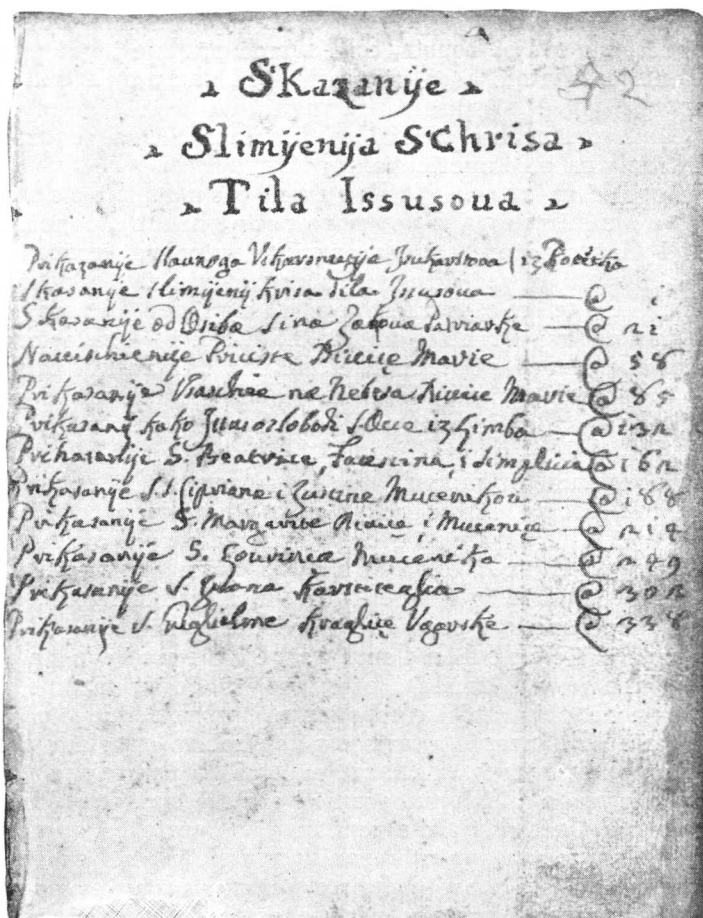 Skazanije
42
Slimijenija S'Chrisa
Tila Issusoua
Prikazanije slaunoga Vskarsnutija Isukarstoua | iz Pocetka
Skasanije slimijenij krisa Tila Isusoua 1
Skasanije od Osiba sina Jakoua Patriarke 21
Nauischienije Priciste Diuice Marie 58
Prikasanije Vsaschia na Nebesa Diuice Marie 85
Prikasanij kako Isus oslobodi s. Oce iz Limba 132
Prikasanije S. Beatrice, Faustina, i Simplicia 162
Prikasanije S.S. Cipriana i Justine Mucenikou 188
Prikasanije S. Margarite Diuice i Mucenice 214
Prikasanije S. Lourinca Mucenika 249
Prikasanije S. Iuana Karstiteglia 302
Prikasanije S. Guglielme Kraglice Vgarske 338